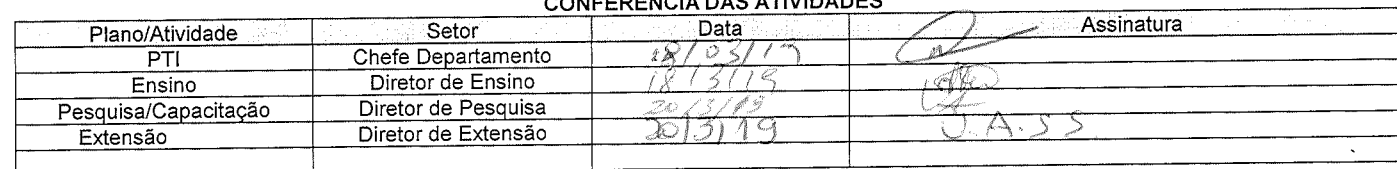 CONFERÊNCIA DAS ATIVIDADES
Plano/Atividade Setor Data Assinatura
PTI Chefe Departamento 18/03/19
Ensino Diretor de Ensino 18/3/19
Pesquisa/Capacitação Diretor de Pesquisa 20/3/19
Extensão Diretor de Extensão 20/3/19 J.A.SS